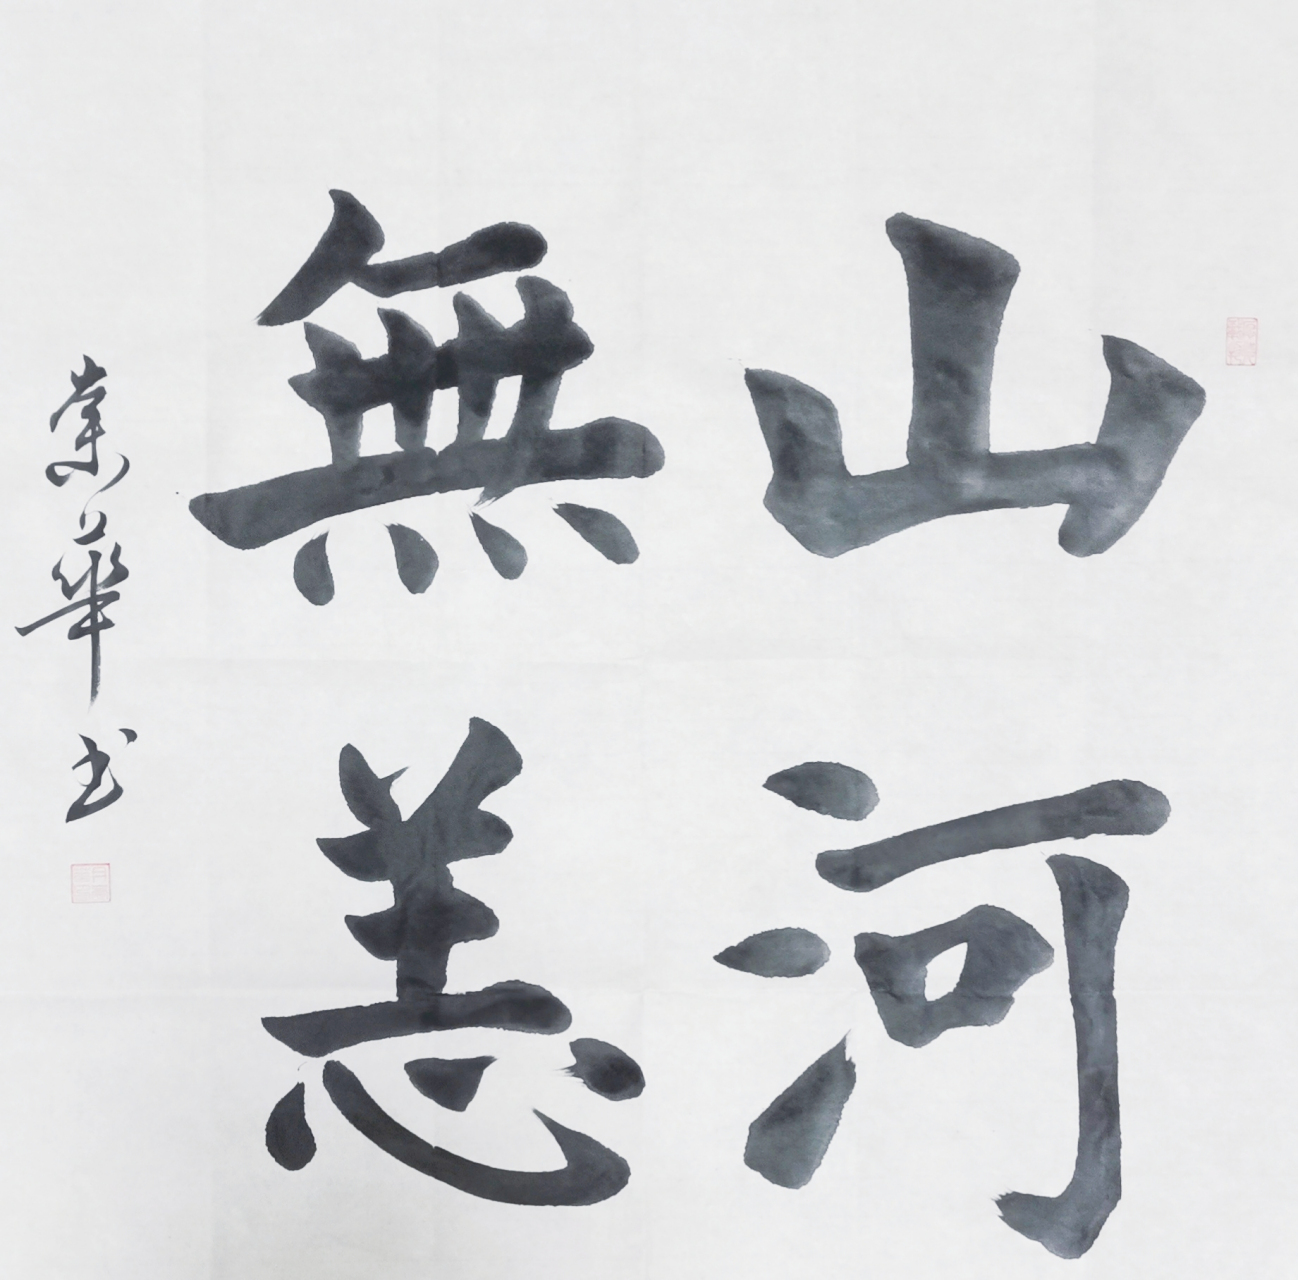 山河
無恙
華书